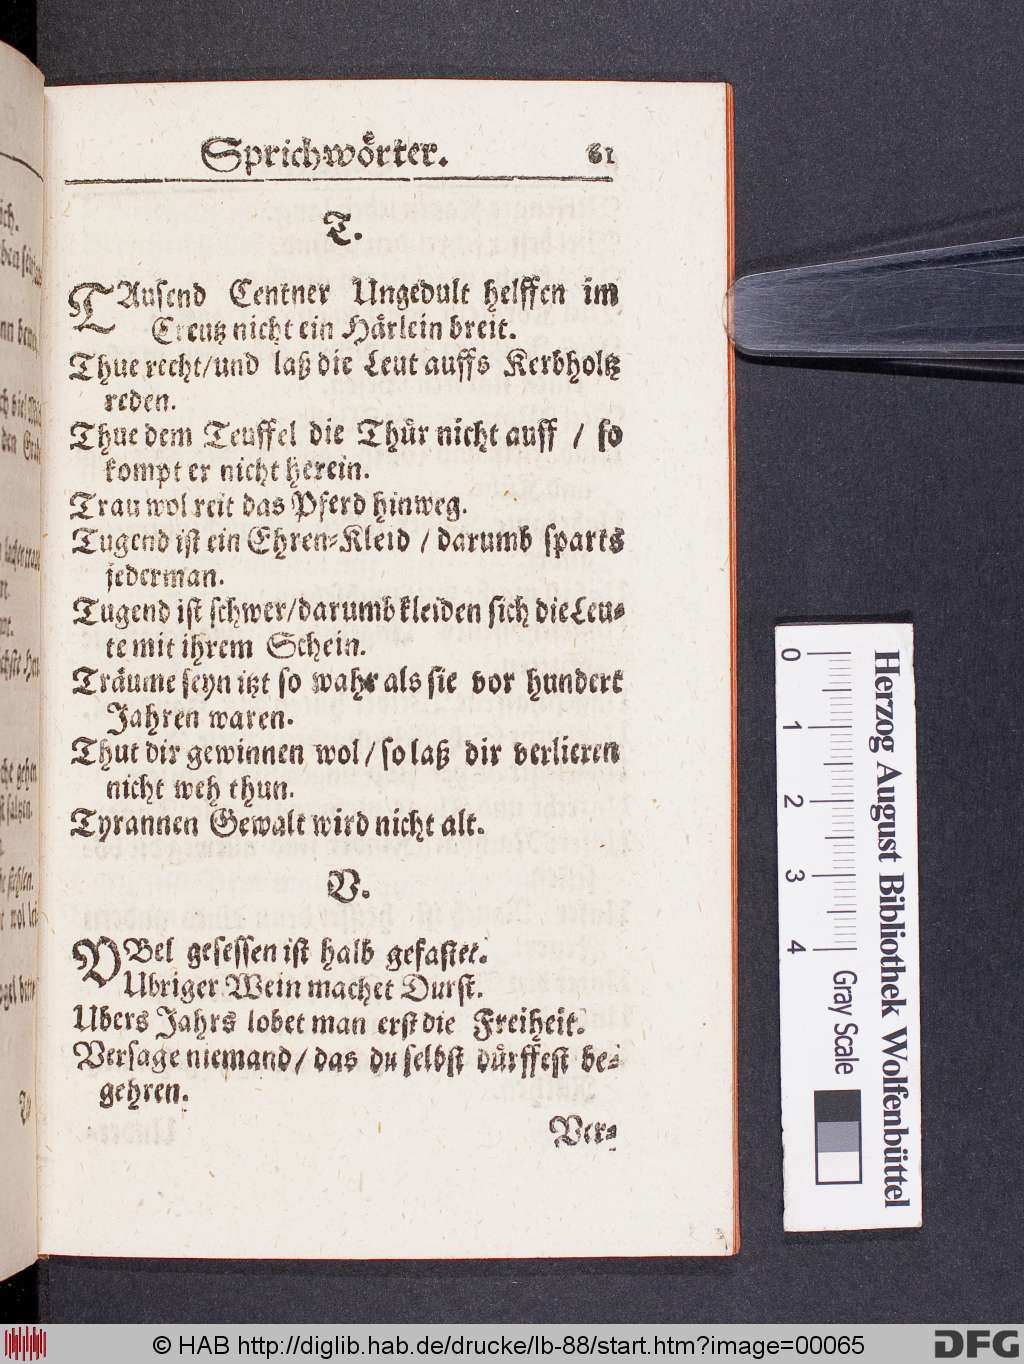 Sprichwörter. 61
T.
TAusend Centner Ungedult helffen im
Creutz nicht ein Härlein breit.
Thue recht/und laß die Leut auffs Kerbholtz
reden.
Thue dem Teuffel die Thür nicht auff / so
kompt er nicht herein.
Trau wol reit das Pferd hinweg.
Tugend ist ein Ehren-Kleid / darumb sparts
jederman.
Tugend ist schwer/darumb kleiden sich die Leu-
te mit ihrem Schein.
Träume seyn itzt so wahr als sie vor hundert
Jahren waren.
Thut dir gewinnen wol / so laß dir verlieren
nicht weh thun.
Tyrannen Gewalt wird nicht alt.
V.
VBel gesessen ist halb gefastet.
Ubriger Wein machet Durst.
Ubers Jahrs lobet man erst die Freiheit.
Versage niemand / das du selbst dürffest be-
gehren.
Ver-
0 1 2 3 4
Gray Scale
Herzog August Bibliothek Wolfenbüttel
© HAB http://diglib.hab.de/drucke/lb-88/start.htm?image=00065
DFG